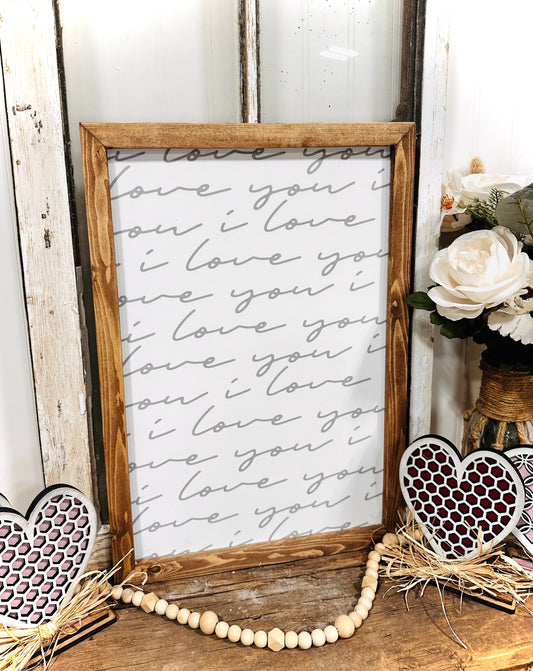 i love you
love you i
you i love
i love you
love you i
i love you
love you i
you i love
i love you
love you i
i love you
love you i
you i love